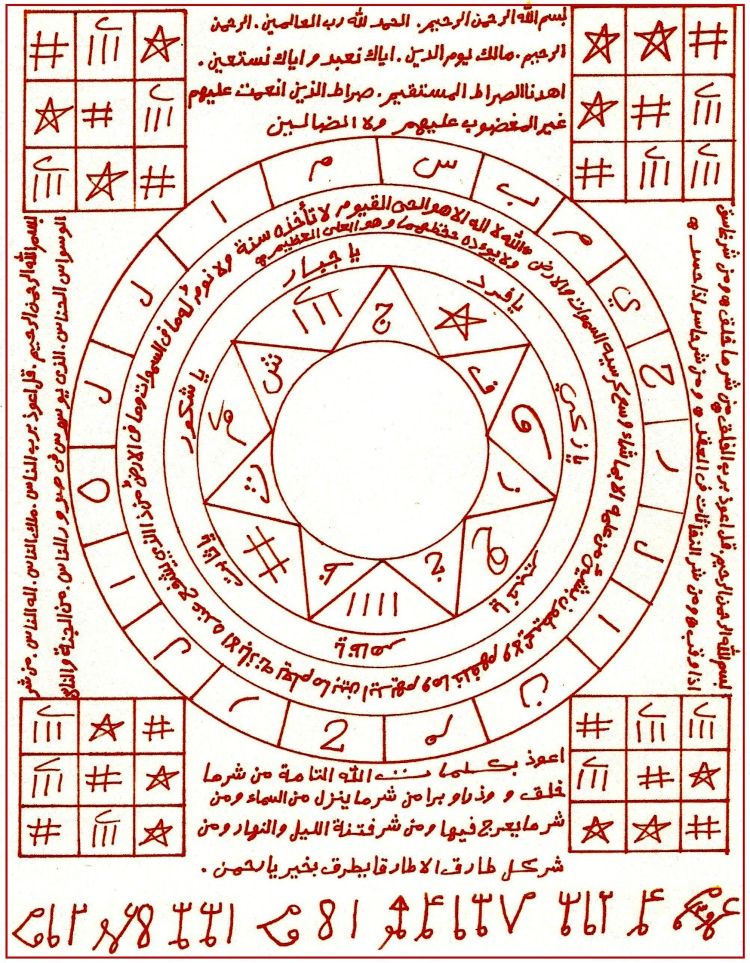 بسم الله الرحمن الرحيم. الحمد لله رب العالمين. الرحمن
الرحيم. مالك يوم الدين. اياك نعبد و اياك نستعين.
اهدنا الصراط المستقيم. صراط الذين انعمت عليهم
غير المغضوب عليهم ولا الضالين
ب س م ا ل ل ه ا ل ر ح م ن ا ل ر ح ي م
الله لا اله الا هو الحى القيوم لا تأخذه سنة ولا نوم له ما فى السموات وما فى الارض من ذا الذى يشفع عنده الا باذنه يعلم ما بين ايديهم وما خلفهم ولا يحيطون بشيئ من علمه الا بما شاء وسع كرسيه السموات والارض
ولا يؤده حفظهما وهو العلى العظيم
يا فرد
يا جبار
يا شكور
يا ثابت
يا خبير
يا زكي
ف
ج
ش
ث
ظ
خ
ز
بسم الله الرحمن الرحيم. قل اعوذ برب الفلق من شر ما خلق ومن شر غاسق
اذا وقب ومن شر النفاثات فى العقد ومن شر حاسد اذا حسد
بسم الله الرحمن الرحيم. قل اعوذ برب الناس. ملك الناس. اله الناس. من شر
الوسواس الخناس. الذى يوسوس فى صدور الناس. من الجنة والناس
اعوذ بكلمات الله التامة من شر ما
خلق و وذرا وبرا من شر ما ينزل من السماء ومن
شر ما يعرج فيها ومن شر فتنة الليل والنهار ومن
شر كل طارق الا طارقا يطرق بخير يا رحمن.